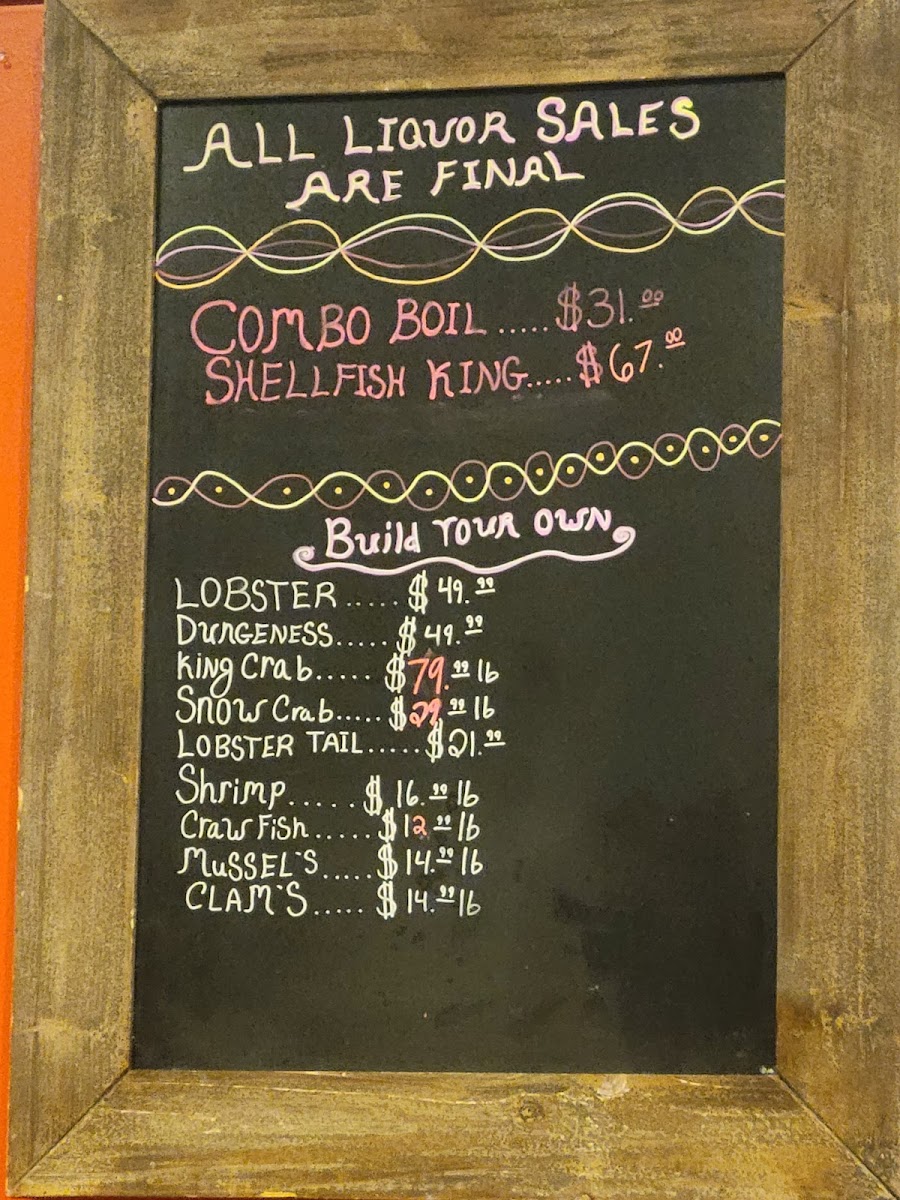 ALL LIQUOR SALES
ARE FINAL
COMBO BOIL ..... $31.00
SHELLFISH KING..... $67.00
Build YOUR OWN
LOBSTER ..... $49.99
DUNGENESS..... $49.99
King Crab..... $79.99 lb
Snow Crab..... $29.99 lb
LOBSTER TAIL..... $21.99
Shrimp..... $16.99 lb
Craw Fish..... $12.99 lb
MUSSEL'S..... $14.99 lb
CLAM'S..... $14.99 lb